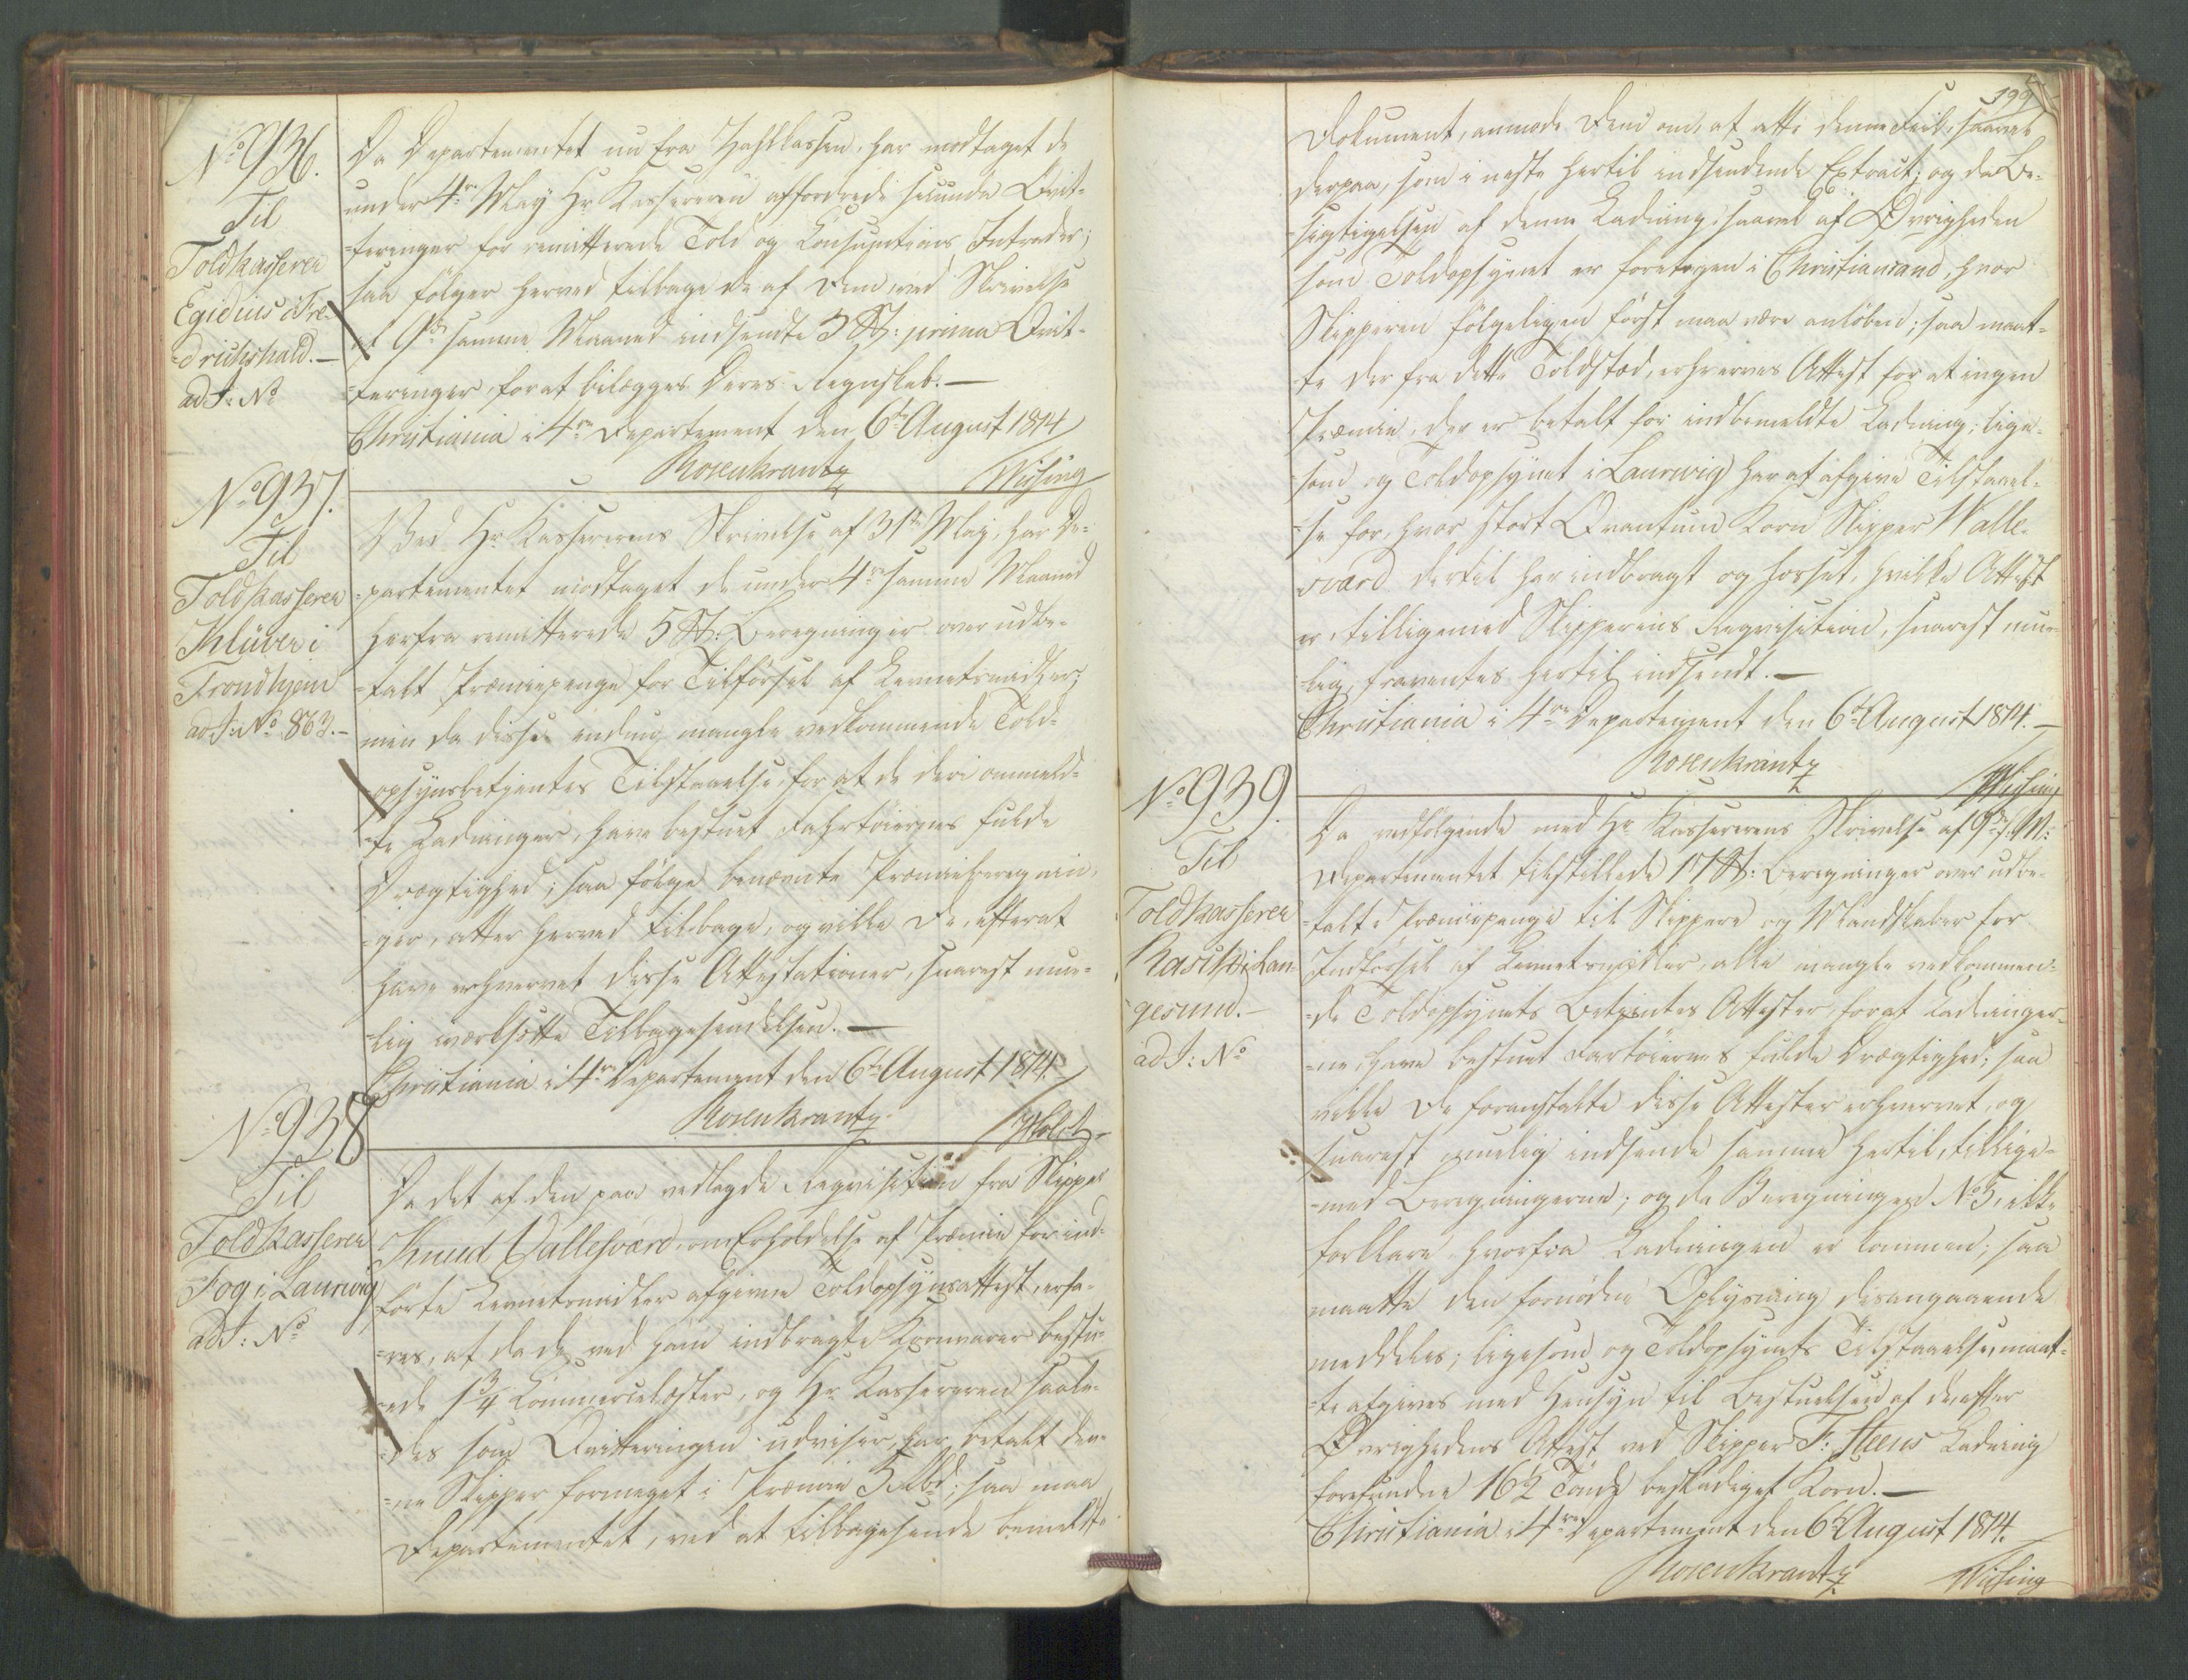 No 936.
Til
Toldkasserer
Egidius i Fre-
-drichshald. —
ad J: No
Da Departementet nu fra Zahlkassen, har modtaget de
under 4de May Hr Kassereren affordrede secunda Qvit-
-teringer for remitterede Told og Consumtions Intrader;
saa følger herved tilbage de af Dem, ved Skrivelse
af 9de samme Maaned indsendte 3 St: prima Qvit-
-teringer, for at bilægges Deres Regnskab. —
Christiania i 4de Departement den 6te August 1814
Rosenkrantz
Wissing
No 937.
Til
Toldkasserer
Klüver i
Trondhjem
ad J: No 863. -
Ved Hr Kassererens Skrivelse af 31te May, har De-
-partementet modtaget de under 4de samme Maaned
herfra remitterede 5 St: Beregninger over udbe-
-talt Præmiepenge for Tilførsel af Levnetsmidler;
men da disse endnu mangle vedkommende Told-
-opsynsbetjentes Tilstaaelse, for at de deri ommeld-
-te Ladninger, have bestuet Fahrtøiernes fulde
Drægtighed; saa følge benævnte Præmieberegnin-
-ger, atter herved tilbage, og ville De, efterat
have erhvervet disse Attestationer, snarest mue-
-lig iværksætte Tilbagesendelsen. —
Christiania i 4de Departement den 6te August 1814.
Rosenkrantz
Holst
No 938
Til
Toldkasserer
Fog i Laurvig
ad J: No
Da det af den paa vedlagde Reqvisition fra Skipper
Knud Vallesværd, om Erholdelse af Præmie for ind-
førte Levnetsmidler afgivne Toldopsynsattest, erfa-
-res, at da de ved ham indbragte Kornvarer bestu-
-ede 1 3/4 Commercelæster, og Hr Kassereren saale-
-des som Qvitteringen udviser, har betalt den-
-ne Skipper formeget i Præmie 3 Rbd; saa maa
Departementet, ved at tilbagesende bemeldte
199
Dokument, anmode Dem om, at rette denne Feil, saavel
derpaa, som i neste hertil indsendende Extract; og da Be-
-sigtigelsen af denne Ladning, saavel af Øvrigheden
som Toldopsynet er foretagen i Christiansand, hvor
Skipperen følgeligen først maa være anløben; saa maat-
-te der fra dette Toldsted, erhverves Attest for at ingen
Præmie, der er betalt for indbemeldte Ladning; lige-
-som og Toldopsynet i Laurvig har at afgive Tilstaael-
-se for, hvor stort Qvantum Korn Skipper Walle-
sværd dertil har indbragt og losset, hvilke Attest
er, tilligemed Skipperens Reqvisition, snarest mue-
-lig, forventes hertil indsendt. —
Christiania i 4de Departement den 6te August 1814. —
Rosenkrantz
Wissing
No 939.
Til
Toldkasserer
i Lan-
-gesund. -
ad J: No
Da vedfølgende med Hr Kassererens Skrivelse af 9de f: M:
Departementet tilstillede 17 St: Beregninger over udbe-
-talte Præmiepenge til Skippere og Mandskaber for
Indførsel af Levnetsmidler, alle mangle vedkommen-
-de Toldopsynets Betjentes Attester, for at Ladninger-
-ne, have bestuet Fartøiernes fulde Drægtighed; saa
ville De foranstalte disse Attester erhvervet, og
snarest muelig indsende samme hertil, tillige-
-med Beregningerne; og da Beregningen No 5, ikke
forklare hvorfra Ladningen er kommen; saa
maatte den fornødne Oplysning desangaaende
meddeles; ligesom og Toldopsynets Tilstaaelse, maat-
-te afgives med Hensyn til Bestuelsen af de, efter
Øvrighedens Attest ved Skipper F: Steens Ladning
forefundne 16 1/2 Tønde beskadiget Korn. —
Christiania i 4de Departement den 6te August 1814.
Rosenkrantz
Wissing